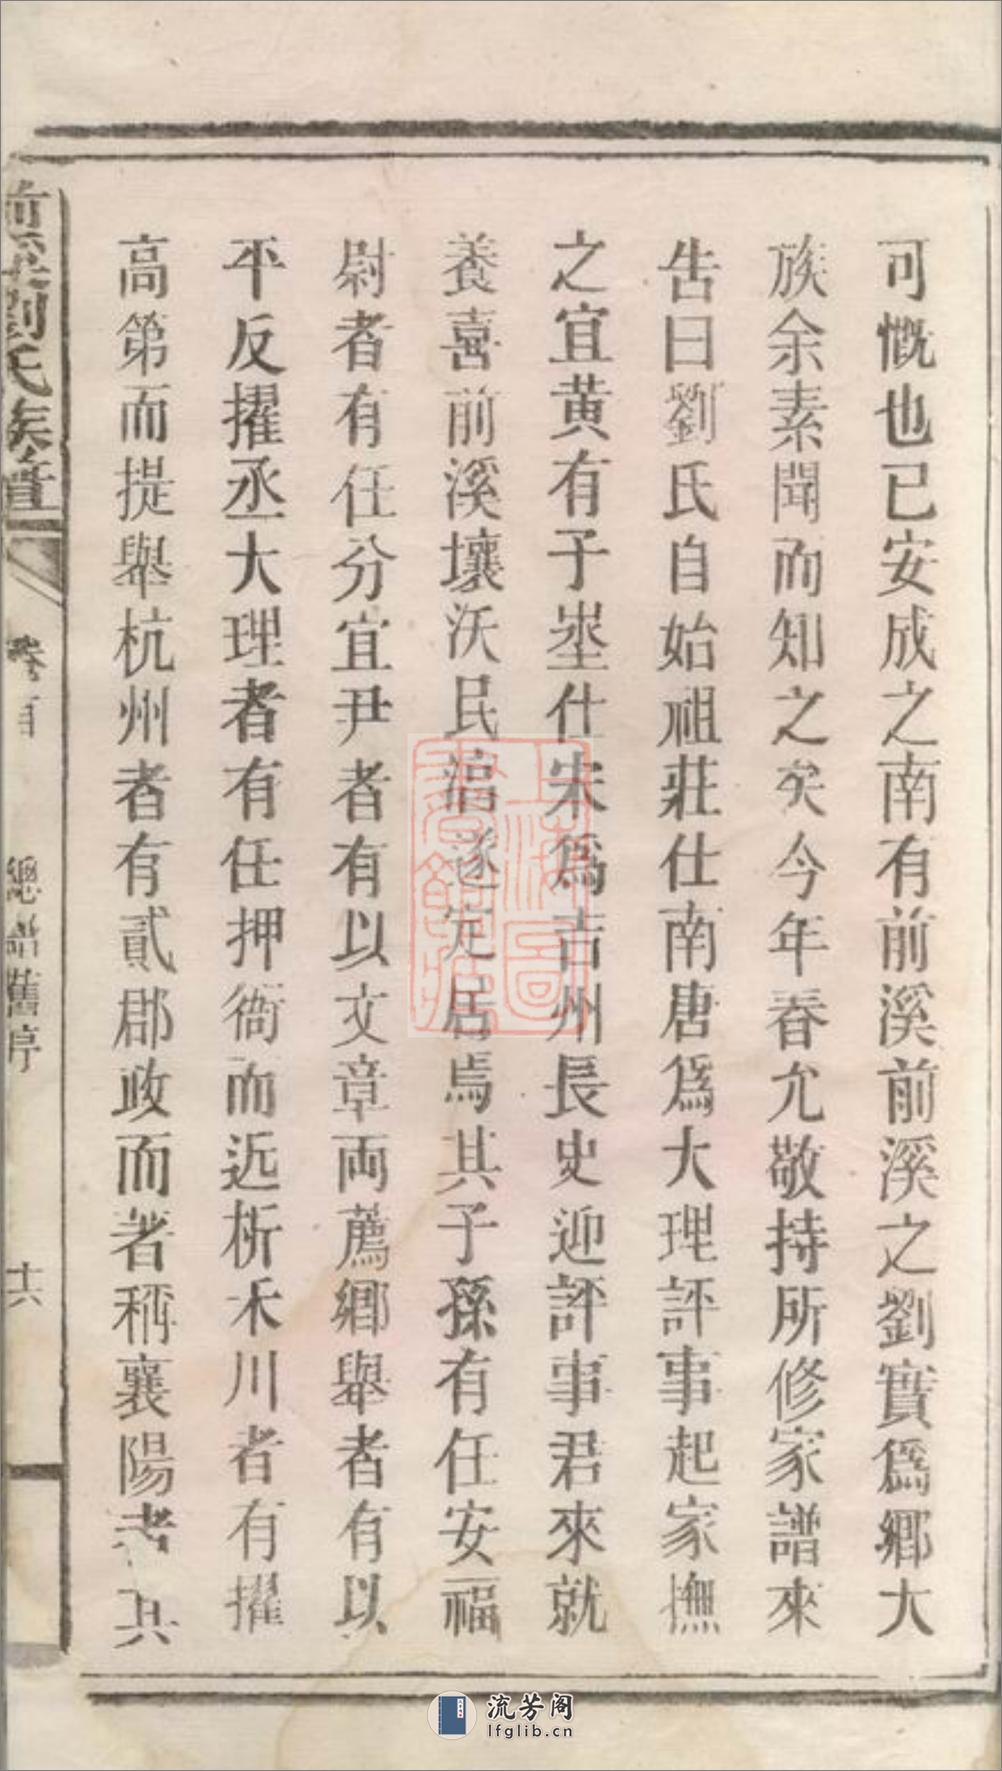 可慨也已安成之南有前溪前溪之劉實爲鄉大
族余素聞而知之矣今年春允敬持所修家譜來
告曰劉氏自始祖莊仕南唐爲大理評事起家撫
之宜黃有子埊仕宋爲吉州長史迎評事君來就
養喜前溪壤沃民淳遂定居焉其子孫有任安福
尉者有任分宜尹者有以文章両薦鄉舉者有以
平反擢丞大理者有任押衙而近析禾川者有擢
高第而提舉杭州者有貳郡政而著稱襄陽者其
前溪劉氏族譜
卷首
總譜舊序
十六
上海圖書館藏
流芳阁
lfglib.cn